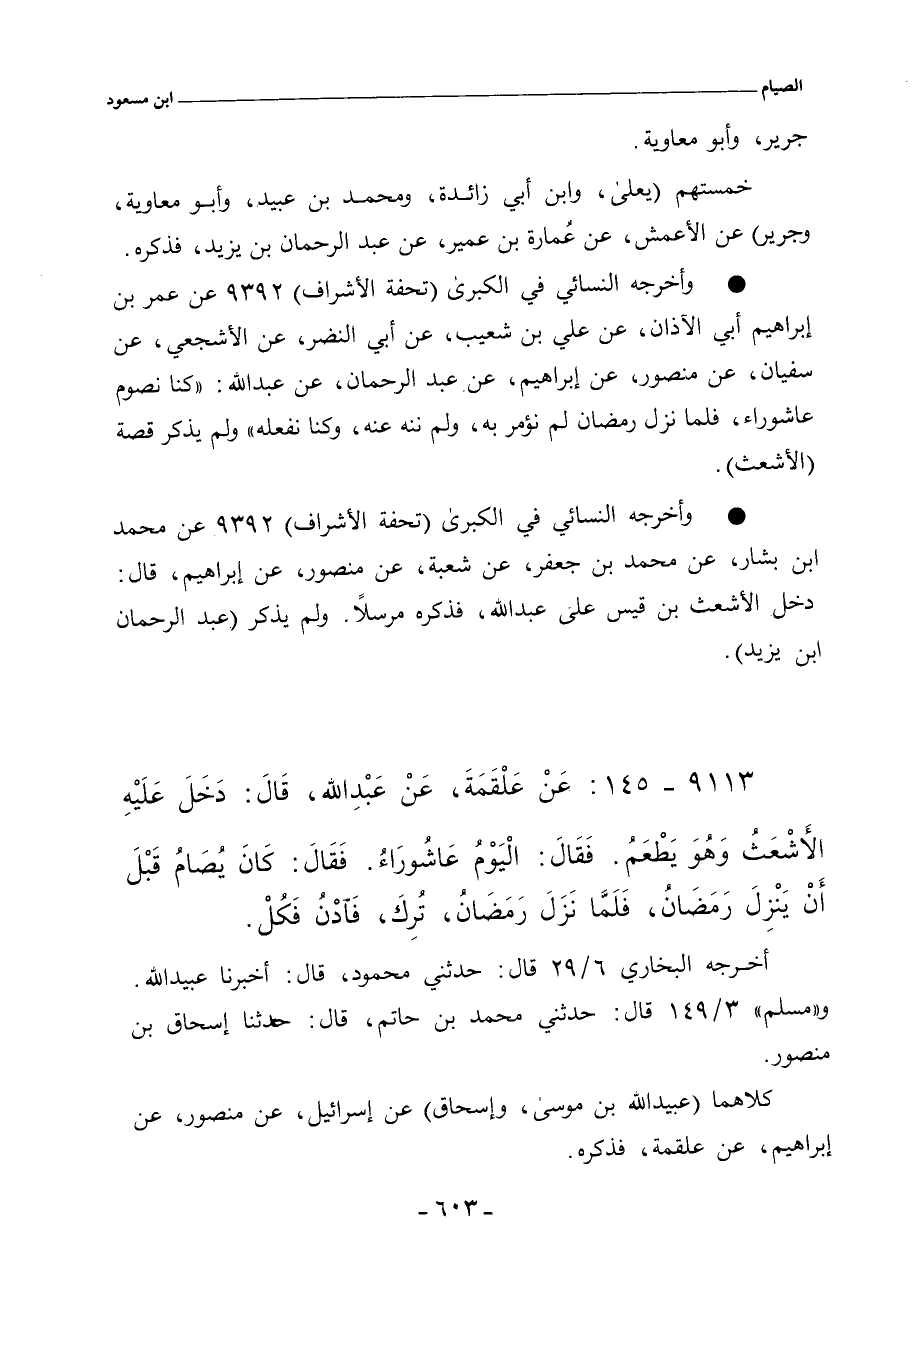 الصيام ـــــــــــــــــــــــــــــــــــــــــــــــ ابن مسعود
جرير، وأبو معاوية.
خمستهم (يعلىٰ، وابن أبي زائدة، ومحمد بن عبيد، وأبو معاوية،
وجرير) عن الأعمش، عن عُمارة بن عمير، عن عبد الرحمان بن يزيد، فذكره.
● وأخرجه النسائي في الكبرىٰ (تحفة الأشراف) ٩٣٩٢ عن عمر بن
إبراهيم أبي الآذان، عن علي بن شعيب، عن أبي النضر، عن الأشجعي، عن
سفيان، عن منصور، عن إبراهيم، عن عبد الرحمان، عن عبدالله: «كنا نصوم
عاشوراء، فلما نزل رمضان لم نؤمر به، ولم ننه عنه، وكنا نفعله» ولم يذكر قصة
(الأشعث).
● وأخرجه النسائي في الكبرىٰ (تحفة الأشراف) ٩٣٩٢ عن محمد
ابن بشار، عن محمد بن جعفر، عن شعبة، عن منصور، عن إبراهيم، قال:
دخل الأشعث بن قيس على عبدالله، فذكره مرسلاً. ولم يذكر (عبد الرحمان
ابن يزيد).
٩١١٣ ـ ١٤٥: عَنْ عَلْقَمَةَ، عَنْ عَبْدِالله، قَالَ: دَخَلَ عَلَيْهِ
الأَشْعَثُ وَهُوَ يَطْعَمُ. فَقَالَ: الْيَوْمُ عَاشُورَاءُ. فَقَالَ: كَانَ يُصَامُ قَبْلَ
أَنْ يَنْزِلَ رَمَضَانُ، فَلَمَّا نَزَلَ رَمَضَانُ، تُرِكَ، فَآدْنُ فَكُلْ.
أخرجه البخاري ٢٩/٦ قال: حدثني محمود، قال: أخبرنا عبيدالله.
و«مسلم» ١٤٩/٣ قال: حدثني محمد بن حاتم، قال: حدثنا إسحاق بن
منصور.
كلاهما (عبيدالله بن موسىٰ، وإسحاق) عن إسرائيل، عن منصور، عن
إبراهيم، عن علقمة، فذكره.
ـ ٦٠٣ ـ